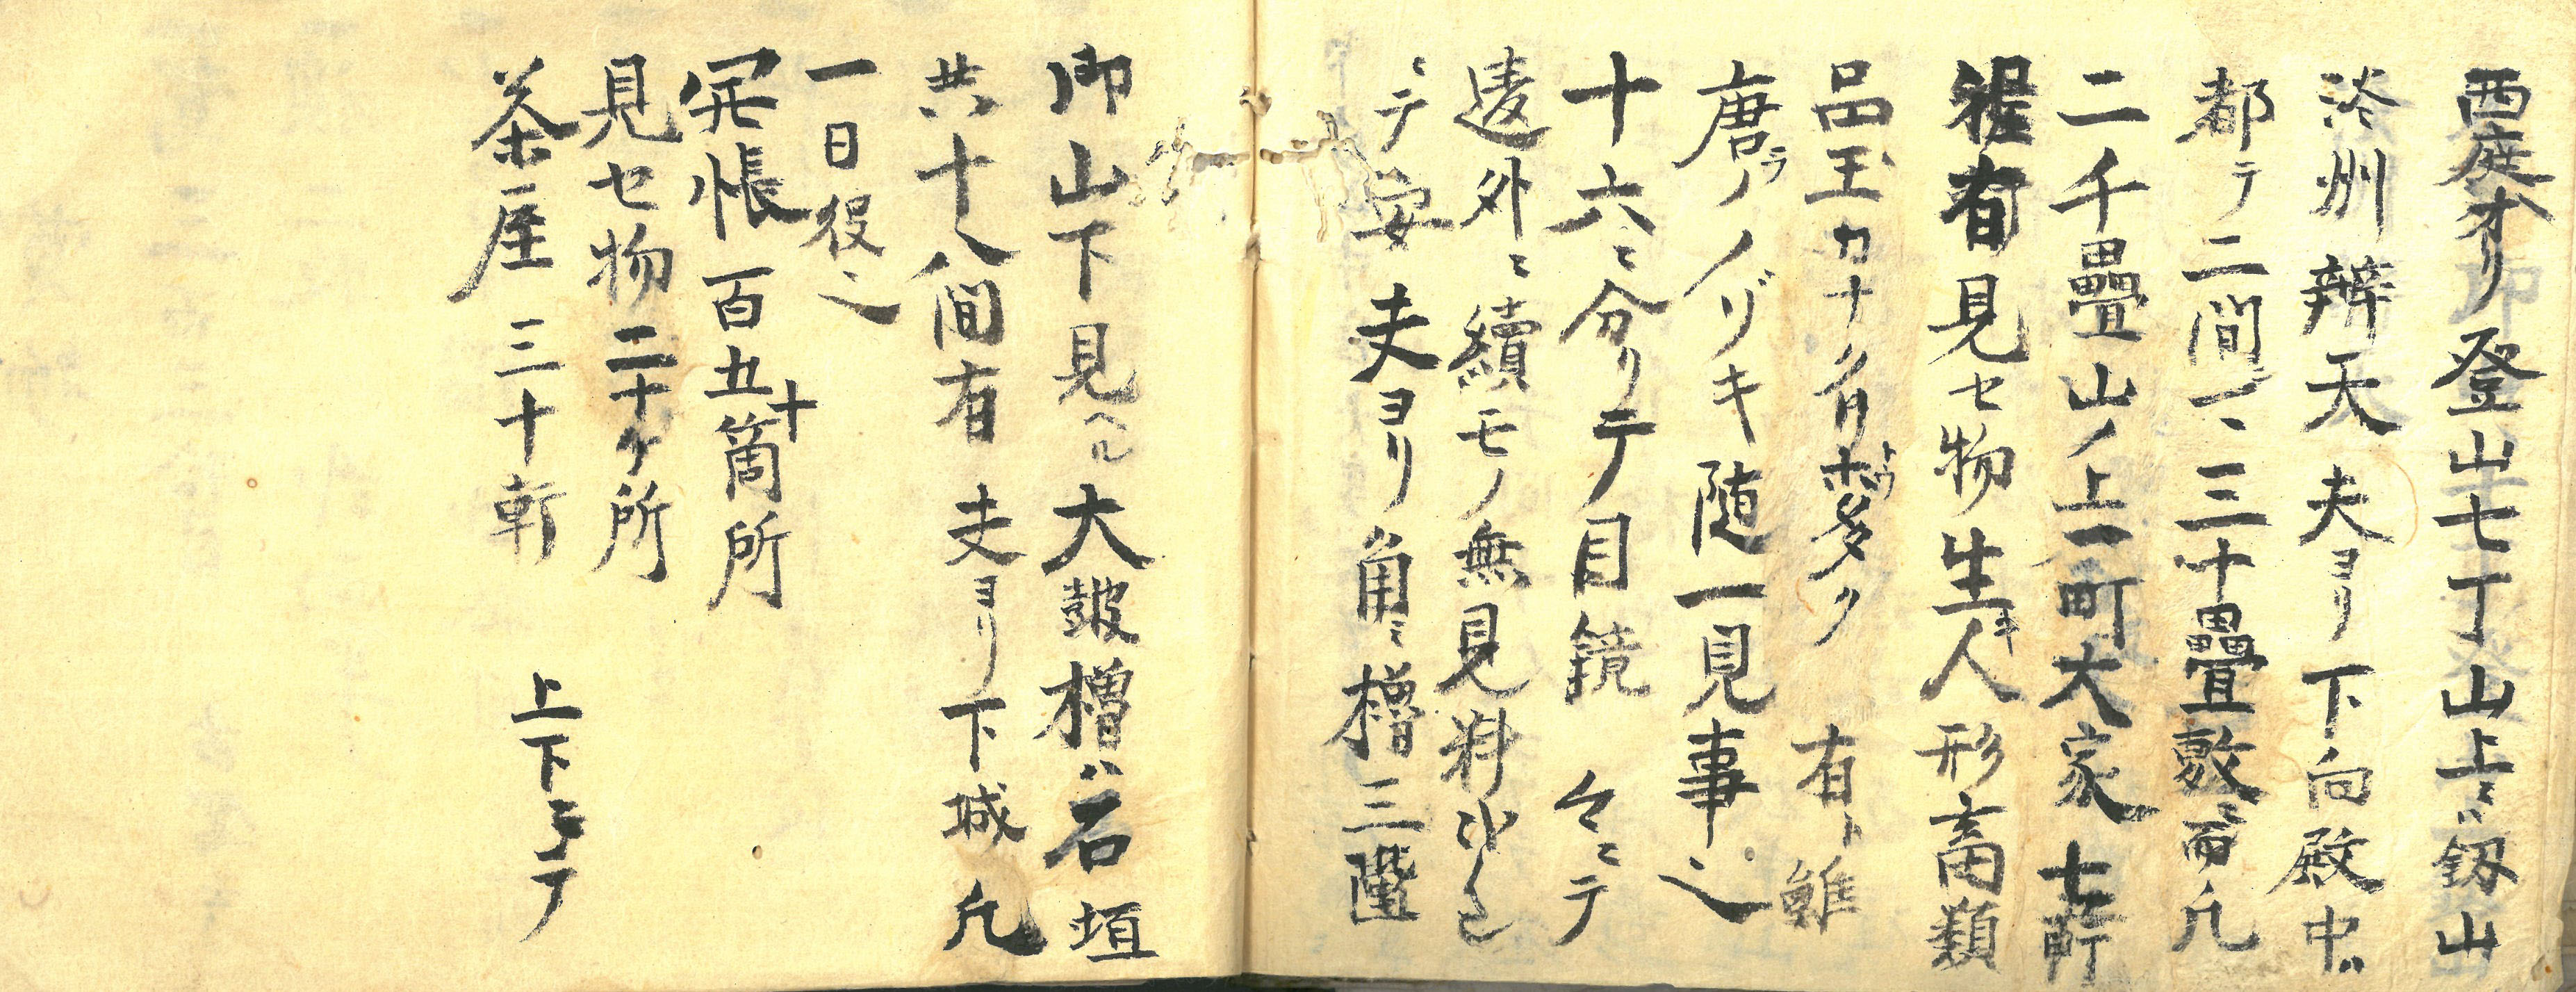 西庭オリ登山七丁山上ニハ釼山
淡州辨天夫ヨリ下向殿中ハ
都テ二間ニ、三十疊敷ニ而凡
二千疊山ノ上一町大家七軒
程有見セ物生キ人形畜類
品玉カナ夥タク有ト雖
唐ラノノゾキ随一見事也
十六ニ分リテ目鏡々ニテ
違外ニ續モノ無見料
ニテ安夫ヨリ角ニ櫓三階
御山下見ヘル大皷櫓ハ石垣
共十八間有夫ヨリ下城凡
一日役也
開帳百五十箇所
見セ物二十ケ所
茶屋三十軒 上下ニテ